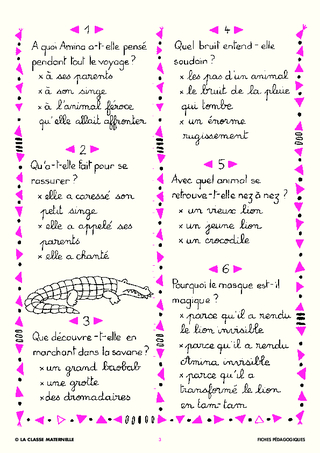 1
A quoi Amina a-t-elle pensé
pendant tout le voyage ?
x à ses parents
x à son singe
x à l'animal féroce
qu'elle allait affronter
2
Qu'a-t-elle fait pour se
rassurer ?
x elle a caressé son
petit singe
x elle a appelé ses
parents
x elle a chanté
3
Que découvre-t-elle en
marchant dans la savane ?
x un grand baobab
x une grotte
x des dromadaires
4
Quel bruit entend-elle
soudain ?
x les pas d'un animal
x le bruit de la pluie
qui tombe
x un énorme
rugissement
5
Avec quel animal se
retrouve-t-elle nez à nez ?
x un vieux lion
x un jeune lion
x un crocodile
6
Pourquoi le masque est-il
magique ?
x parce qu'il a rendu
le lion invisible
x parce qu'il a rendu
Amina invisible
x parce qu'il a
transformé le lion
en tam-tam
© LA CLASSE MATERNELLE
3
FICHES PÉDAGOGIQUES